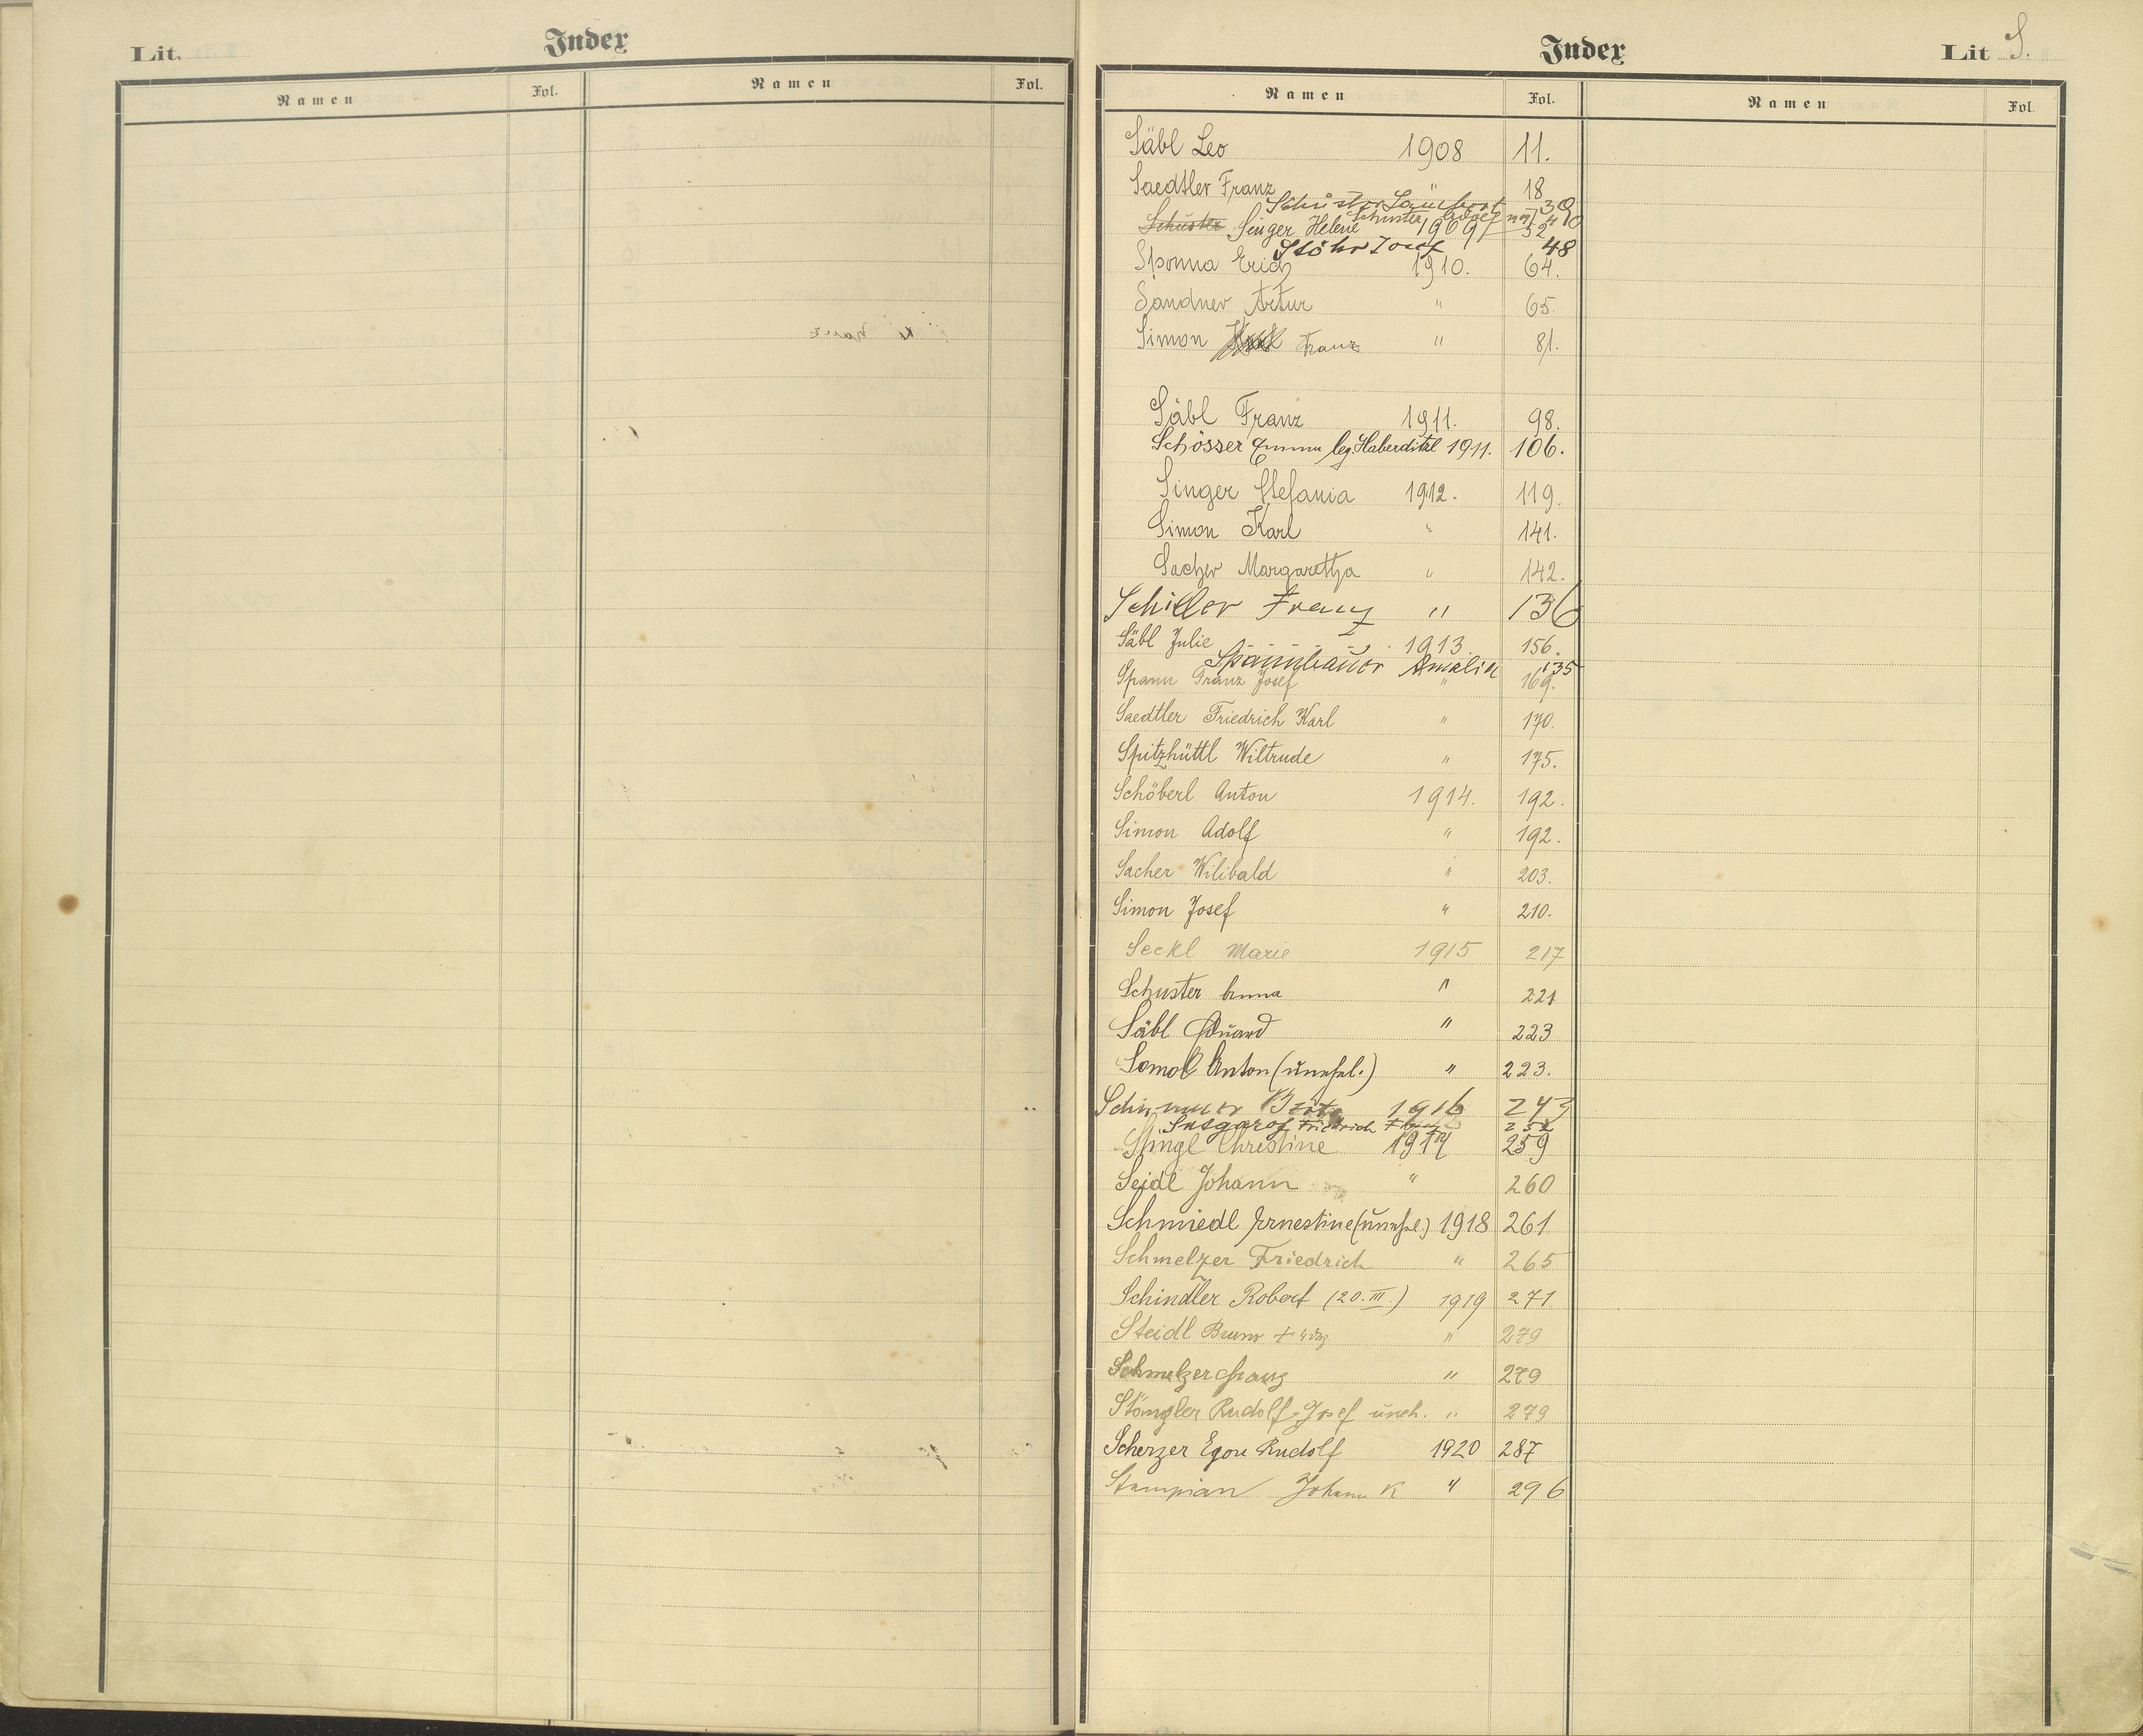 Lit.
Index
Namen Fol. Namen Fol.
Index
Lit S.
Namen Fol. Namen Fol.
Säbl Leo 1908 11.
Saedtler Franz 18
Schuster 30
Schuster Singer Helene 1909 52
Schuster Adolf 40
Stöhr Josef 48
Sponna Erich 1910. 64.
Sandner Artur " 65.
Simon Franz " 81.
Säbl Franz 1911. 98.
Schösser Emma leg. Haberditzl 1911. 106.
Singer Stefania 1912. 119.
Simon Karl " 141.
Sacher Margaretha " 142.
Schiller Franz " 136
Säbl Julie 1913. 156.
Spannbauer Amalia 135
Spann Franz Josef " 169.
Saedtler Friedrich Karl " 170.
Spitzhüttl Wiltrude " 175.
Schöberl Anton 1914. 192.
Simon Adolf " 192.
Sacher Wilibald " 203.
Simon Josef " 210.
Seckl Marie 1915 217
Schuster Anna " 221
Säbl Eduard " 223
Somol Anton (unehel.) " 223.
1916 243
Friedrich 252
Stingl Christine 1917 259
Seidl Johann " 260
Schmiedl Ernestine (unehel.) 1918 261
Schmelzer Friedrich " 265
Schindler Robert (20. III.) 1919 271
Steidl Bruno + " 279
Schmelzer Franz " 279
Stöngler Rudolf Josef uneh. " 279
Scherzer Egon Rudolf 1920 287
Stampian Johann K " 296